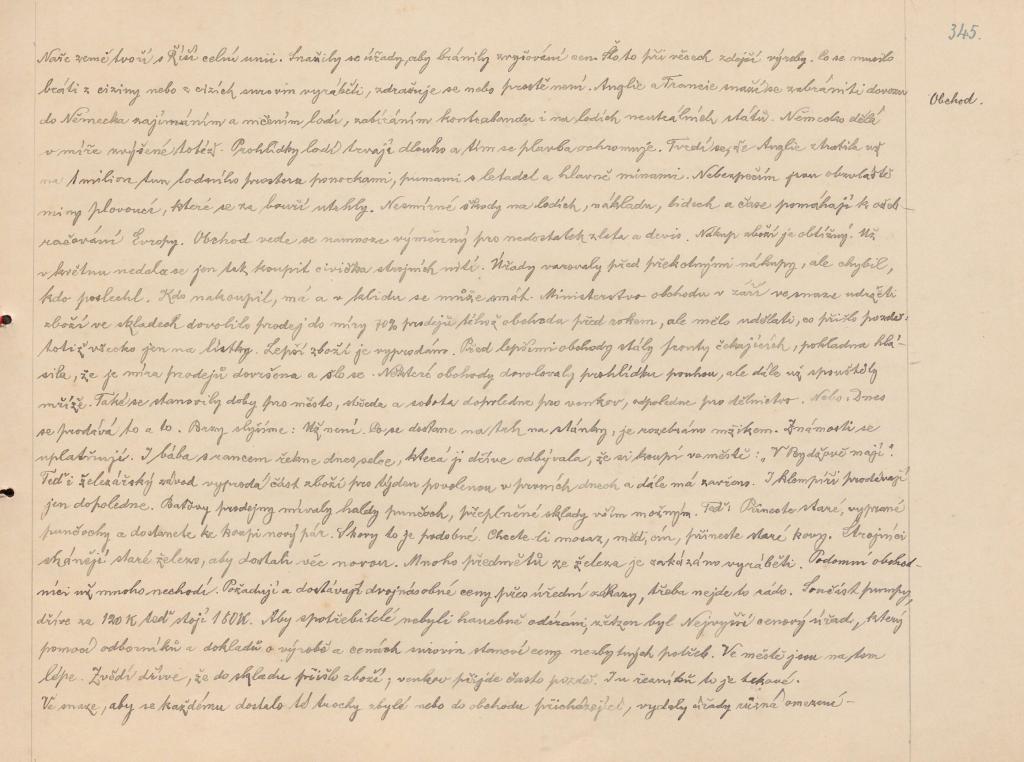 345.
Naše země tvoří s Říší celní unii. Snažily se úřady, aby bránily zvyšování cen. Šlo to při věcech zdejší výroby. Co se musilo
Obchod.
bráti z ciziny nebo z cizích surovin vyráběti, zdražuje se nebo prostě není. Anglie a Francie snaží se zabrániti dovozu
do Německa zajímáním a ničením lodí, zabíráním kontrabandu i na lodích neutrálních států. Německo dělá
v míře zvýšené totéž. Prohlídky lodí trvají dlouho a tím se plavba ochromuje. Tvrdí se, že Anglie ztratila už
na 1 milion tun lodního prostoru ponorkami, pumami s letadel a hlavně minami. Nebezpečím jsou obzvláště
miny plovoucí, které se za bouří utrhly. Nesmírné škody na lodích, nákladu, lidech a čase pomáhají k ožeb-
račování Evropy. Obchod vede se namnoze výměnný pro nedostatek zlata a devis. Nákup zboží je obtížný. Už
v květnu nedala se jen tak koupit civička strojních nití. Úřady varovaly před překotnými nákupy, ale chybil,
kdo poslechl. Kdo nakoupil, má a v klidu se může smát. Ministerstvo obchodu v září ve snaze udržeti
zboží ve skladech dovolilo prodej do míry 70% prodejů téhož obchodu před rokem, ale mělo udělati, co přišlo pozdě:
totiž všecko jen na lístky. Lepší zboží je vyprodáno. Před lepšími obchody stály fronty čekajících, pokladna hlá-
sila, že je míra prodejů dovršena a šlo se. Některé obchody dovolovaly prohlídku pouhou, ale dále už spouštěly
mříže. Také se stanovily doby pro město, středa a sobota dopoledne pro venkov, odpoledne pro dělnictvo. Nebo: Dnes
se prodává to a to. Brzy slyšíme: Už není. Co se dostane na trh na stánky, je rozebráno mžikem. Známosti se
uplatňují. I bába s rancem řekne dnes selce, která ji dříve odbývala, že si koupí ve městě: „V Bydžově mají".
Teď i železářský závod vyprodá část zboží pro týden povolenou v prvních dnech a dále má zavřeno. I klempíři prodávají
jen dopoledne. Baťovy prodejny mívaly haldy punčoch, přeplněné sklady vším možným. Teď: Přineste staré, vyprané
punčochy a dostanete ke koupi nový pár. S kovy to je podobné. Chcete-li mosaz, měď, cín, přineste staré kovy. Strojníci
shánějí staré železo, aby dostali věc novou. Mnoho předmětů ze železa je zakázáno vyráběti. Podomní obchod-
níci už mnoho nechodí. Požadují a dostávají dvojnásobné ceny přes úřední zákazy, třeba nejde to rádo. Součást pumpy,
dříve za 120 K teď stojí 180 K. Aby spotřebitelé nebyli hanebně odíráni, zřízen byl Nejvyšší cenový úřad, který
pomocí odborníků a dokladů o výrobě a cenách surovin stanoví ceny nezbytných potřeb. Ve městě jsou na tom
lépe. Zvědí dříve, že do skladu přišlo zboží; venkov přijde často pozdě. I u řezníků to je takové.
Ve snaze, aby se každému dostalo té trochy zbylé nebo do obchodu přicházející, vydaly úřady různá omezení –